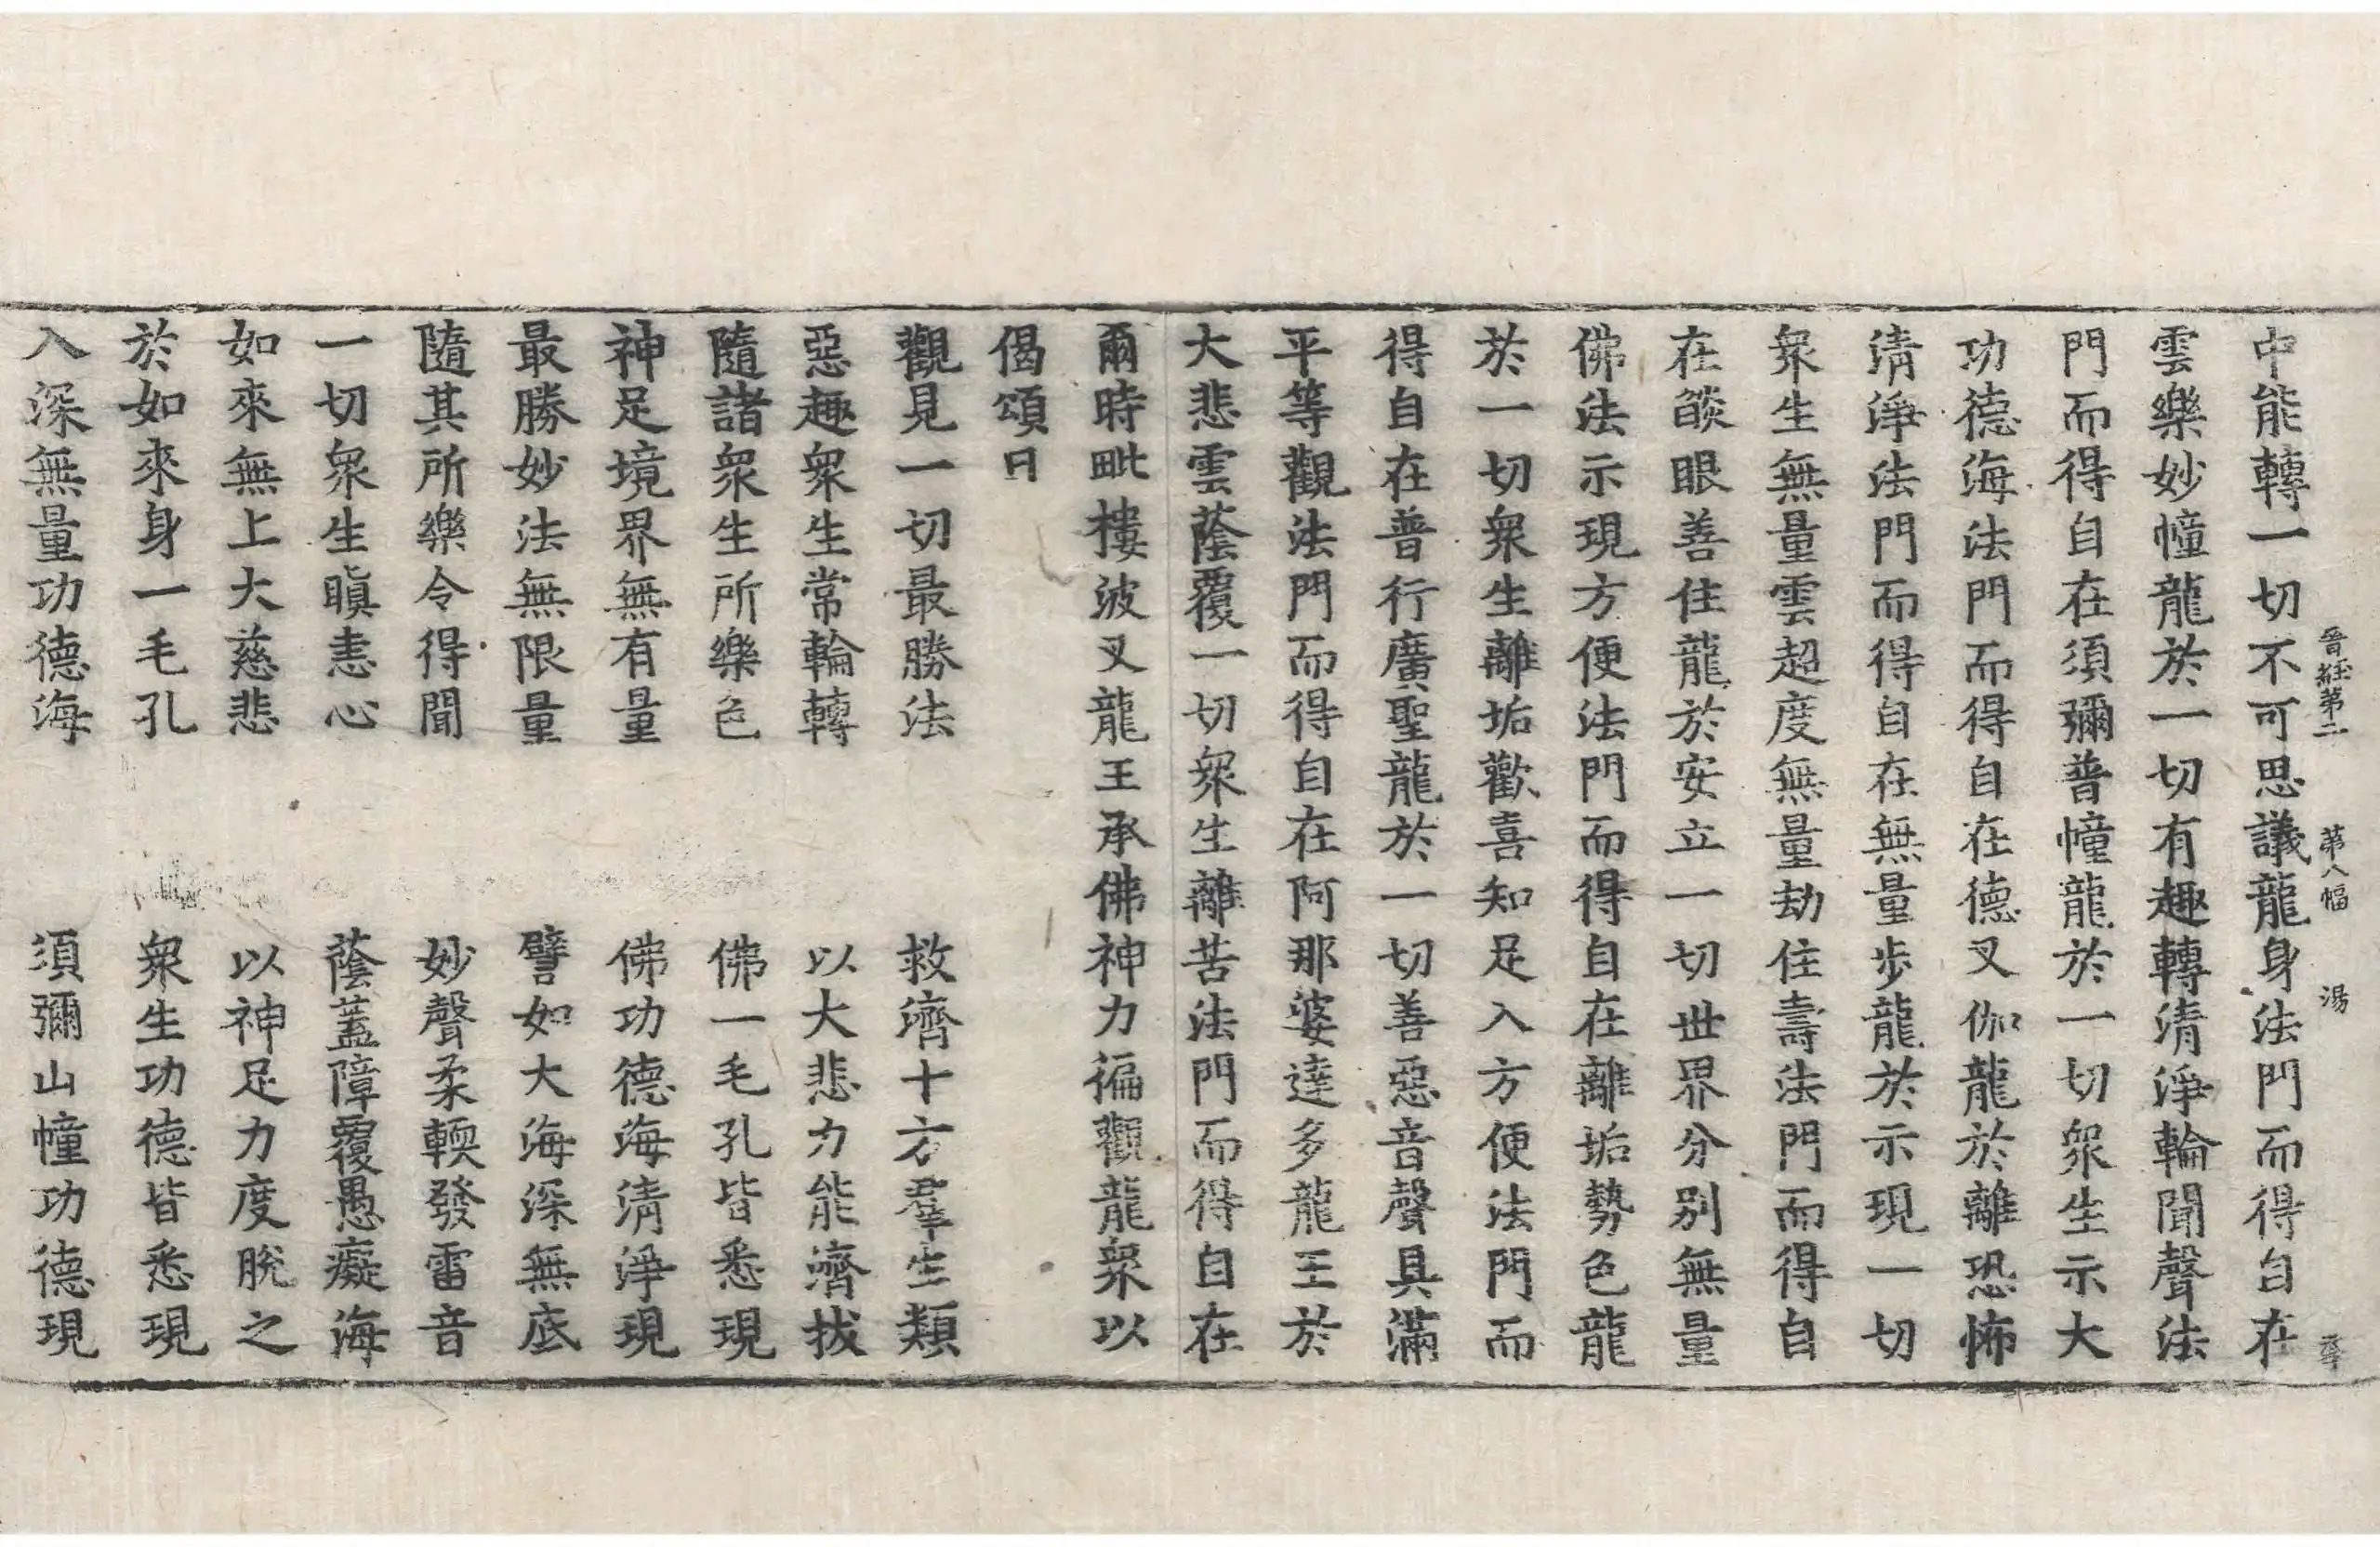 晉經第二　第八幅　湯
中能轉一切不可思議龍身法門而得自在
雲樂妙幢龍於一切有趣轉清淨輪聞聲法
門而得自在須彌普幢龍於一切衆生示大
功德海法門而得自在德叉伽龍於離恐怖
清淨法門而得自在無量步龍於示現一切
衆生無量雲超度無量劫住壽法門而得自
在燄眼善住龍於安立一切世界分別無量
佛法示現方便法門而得自在離垢勢色龍
於一切衆生離垢歡喜知足入方便法門而
得自在普行廣聖龍於一切善惡音聲具滿
平等觀法門而得自在阿那婆達多龍王於
大悲雲蔭覆一切衆生離苦法門而得自在
爾時毗樓波叉龍王承佛神力徧觀龍衆以
偈頌曰
觀見一切最勝法　救濟十方羣生類
惡趣衆生常輪轉　以大悲力能濟拔
隨諸衆生所樂色　佛一毛孔皆悉現
神足境界無有量　佛功德海清淨現
最勝妙法無限量　譬如大海深無底
隨其所樂令得聞　妙聲柔輭發雷音
一切衆生瞋恚心　蔭蓋障覆愚癡海
如來無上大慈悲　以神足力度脫之
於如來身一毛孔　衆生功德皆悉現
入深無量功德海　須彌山幢功德現